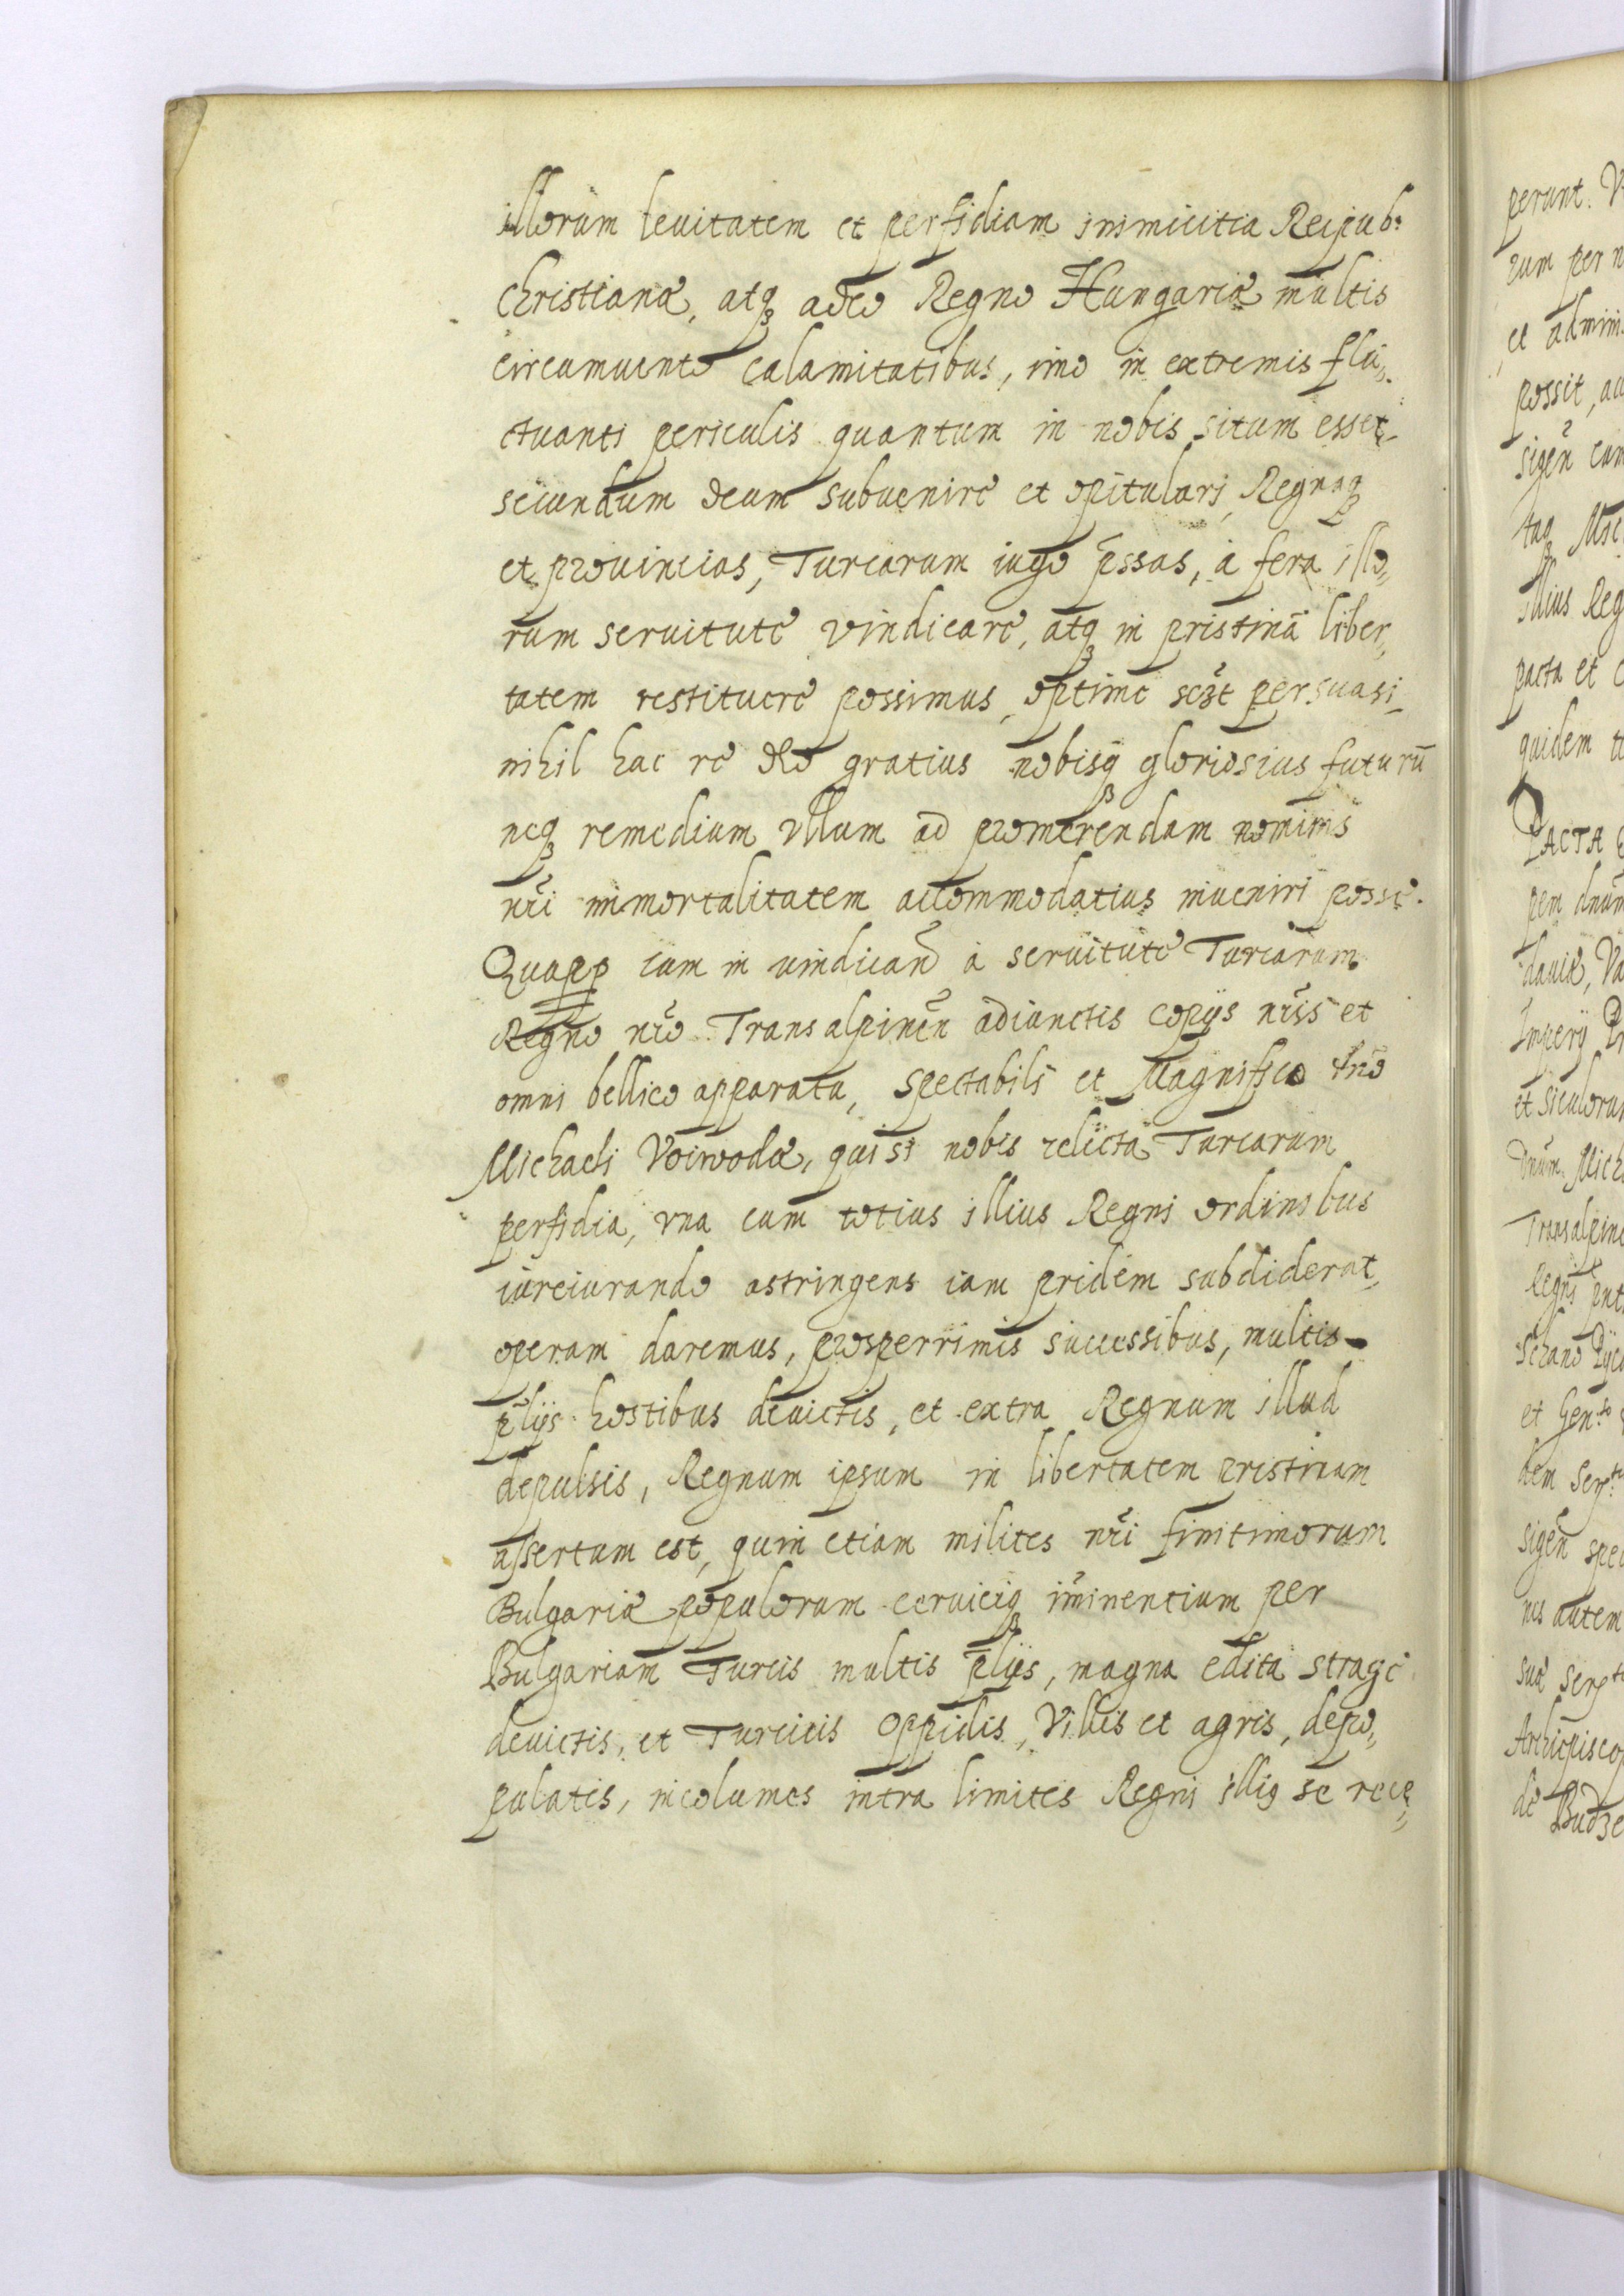 illorum leuitatem et perfidiam inimicitia Reipub:
Christianæ, atq3 adeo Regno Hungariæ multis
circumuento calamitatibus, imo in extremis flu„
ctuanti periculis quantum in nobis situm esset
secundum deum subuenire et opitulari, Regnaq3
et prouincias, Turcarum iugo p̄ssas, à fera illo„
rum seruitute vindicare, atq3 in pristinā liber„
tatem restituere possimus, optime persuasi
nihil hac re deo gratius nobisq3 gloriosius futurū
neq3 remedium vllum ad promerendam nominis
nr̄i immortalitatem accommodatius inueniri posse.
Quapp cum in vindican̄d à seruitute Turcarum
Regno nr̄o Transalpinēn adiunctis copijs nr̄is et
omni bellico apparatu, Spectabili et Magnifico
Michaeli Voiwodæ, qui si nobis relicta Turcarum
perfidia, vna cum totius illius Regni ordinibus
iureiurando astringens iam pridem subdiderat,
operam daremus, prosperrimis successibus, multis
p̄lijs hostibus deuictis, et extra Regnum illud
depulsis, Regnum ipsum in libertatem pristinam
assertum est, quin etiam milites nr̄i finitimorum
Bulgariæ populorum ceruiciq3 im̄inentium per
Bulgariam Turcis multis p̄lijs, magna edita strage
deuictis, et Turcicis Oppidis, Villis et agris, depo„
pulatis, incolumes intra limites Regni illig se rece„
perunt.
rum per
et
possit,
sigēn
tuq3
illius Reg
pacta et
quidem
PACTA
pem
dauiæ,
Imperij
et Siculorum
Dnūm
Transalpine
Regni
et Gen.
dem
sigēn
nis autem
suæ
Archiepisco
de